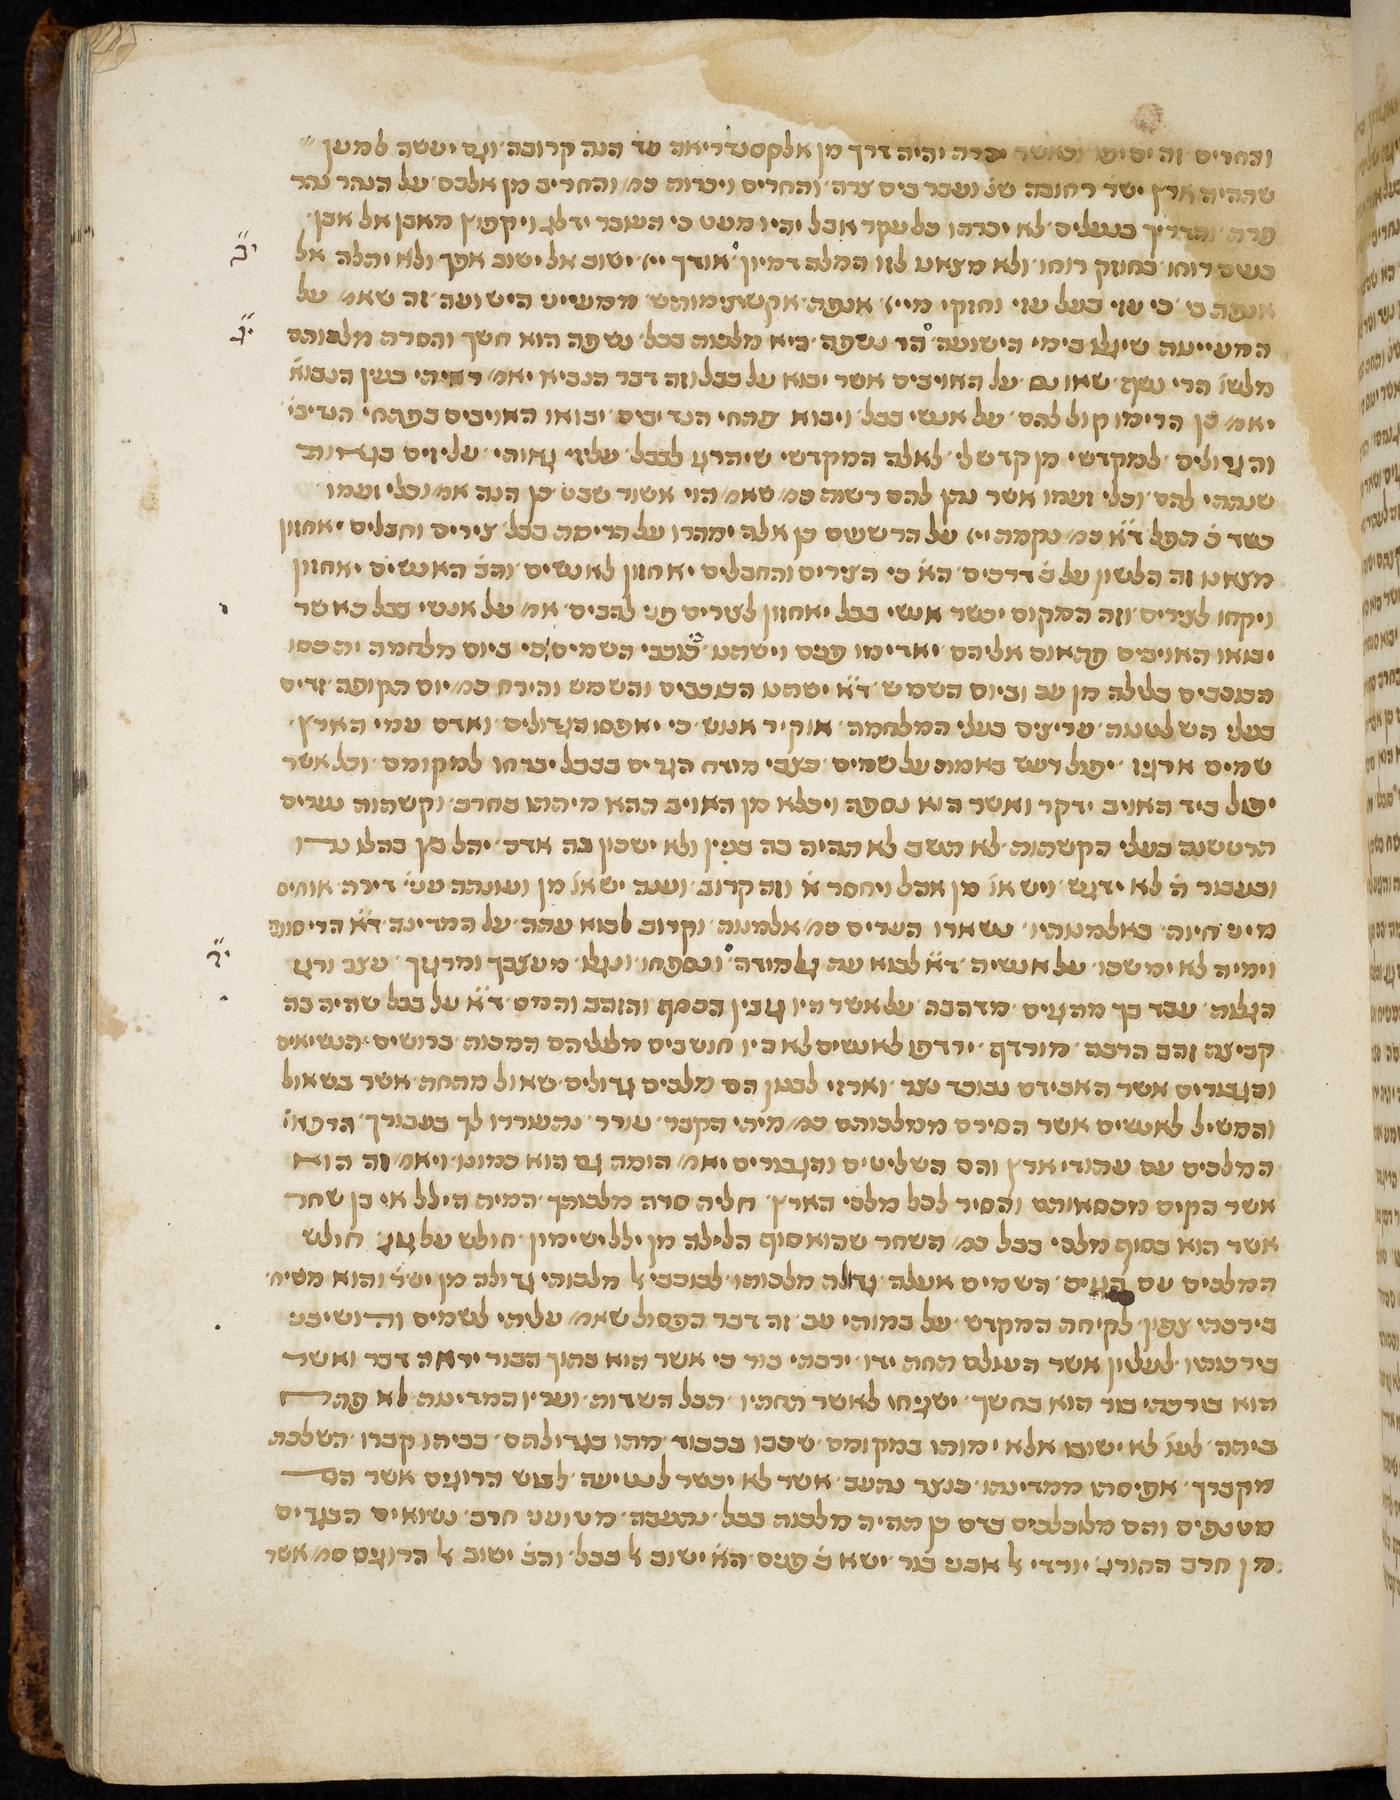 והחרים זה יסיפו וכאשר יכרה יהיה דרך מן אלקסנדריאה עד הנה קרובה וגם יעשה למען
שההיה ארץ ישר רחובה שנ נעבר בים צרה והחרים ויכרות כמ׳ והחריב מן אלבס על הנהר נהר
פרת והדריך בנעלים לא יכרהו כל עקר אבל יהיו מעט כי העובר ידלג ויקפוץ מאבן אל אבן
בעים רוחו בחוזק רוחו ולא מצאנו לזו המלה דמיון אודך ייי ישוב אל ישוב אפך ולא יתלה אל
אנפת בי כי עזי בעל עזי וחזקי מייי אנפת ממעייני הישועה זה שאמ׳ על
המעיינות שיגלו בימי הישועה הר נשפה כי׳א מלכות בבל נשפה הוא חשך והסרת מלכותם
מלשו׳ הרי נשף שאו נס על האויבים אשר יבוא על בבל וזה דבר הנביא יאמ׳ ראיתי בעין הנבוא׳
יאמ׳ כן הרימו קול להם על אנשי בבל ויבוא פתחי הנדיבים יבואו האויבים בפתחי הנדיבי׳
והגדולים למקדשי מן קדש לי לאלה המקדשי שיהרגו לבבל עליזי גאותי עליזים בגאות
שנתתי להם וכלי זעמו אשר נתן להם רשות כמ׳ שאמ׳ הוי אשור שבט כן הנה אמ׳ וכלי זעמו
כשד כ׳ הפל ד״א כמ׳ נקמת ייי על הרשעים כן אלה ימהרו על הריסת בבל צירים וחבלים יאחזון
מצאנו זה הלשון על ב׳ דרכים הא׳ כי הצירים והחבלים יאחזון לאנשים והב׳ האנשים יאחזון
ויקחו לצירים וזה המקום יכשר אנשי בבל יאחזון לצרים פני להבים אמ׳ על אנשי בבל כאשר
יבואו האויבים פתאום אליהם יאדימו פנים וישתנו כוכבי השמים כי ביום מלחמה יתכסו
הכוכבים בלילה מן עב וביום השמש ד״א ישתנו הכוכבים והשמש והירח כמ׳ יום תקופה זדים
בעלי השלטנות עריצים בעלי המלחמה אוקיר אנוש כי יאפסו הגדולים ואדם עמי הארץ
שמים ארגיז יפול רעש באמת על שמים כצבי מודח הגרים בבבל יברחו למקומם וכל אשר
יפול ביד האויב ידקר ואשר הוא נספה ויכלא מן האויב ההא מיתתו בחרב וקשתות נערים
תרטשנה בעלי הקשתות לא תשב לא תהיה בה בנין ולא ישכון בה אדם יהל כן בהלו נרו
ובעבור ה׳ לא ידגש ויש או׳ מן אהל ויחסר א׳ וזה קרוב וענה יש או׳ מן ועונתה עני׳ דירה אוחים
מיני חיות באלמנותיו נשארו הערים כמ׳ אלמנות וקרוב לבוא עתה על המדינה ד״א הריסות
וימיה לא ימשכו על אנשיה ד״א לבוא עת גלמודה ונספחו ונגלו מעצבך ומרגזך עצב ורגז
הגלות עבד בך מהגוים מדהבה על אשר היו גובין הכסף והזהב והמס ד״א על בבל שהיה בה
קבוצת זהב הרבה מורדף ירדפו לאנשים לא היו חושבים מלעליהם המכות ברושים הנשיאים
והגבורים אשר האבידם נבוכד נצר וארזי לבנון הם מלכים גדולים שאול מתחת אשר בשאול
והמשיל לאנשים אשר הסירם ממלכותם כמ׳ מיתי הקבר עורר נתעוררו לך בעבורך הרפאי׳
המלכים עם עתודי ארץ והם השליטים והגבורים יאמ׳ הומה גם הוא כמונו ויאמ׳ זה הוא
אשר הקים מכסאותם והסיר לכל מלכי הארץ חליה סרה מלכותך המית הילל אי בן שחר
אשר הוא בסוף מלכי בבל כמ׳ השחר שהוא סוף הלילה מן יללי ישימון חולש על גוי חולש
המלכים עם הגוים השמים אעלה גדולה מלכותו לכוכבי אל מלכותי גדולה מן ישר׳ והוא משיח
בירכתי צפון לקיחת המקדש על במותי עב זה דבר הפסול שאמ׳ עליתי לשמים והושיבני
בירכותו לעליון אשר העולם תחת ידו ירכתי בור כי אשר הוא בתוך הבור יראה דבר ואשר
הוא בירכתי בור הוא בחשך ישגיחו לאשר תחתיו תבל השדות ועריו המדינות לא פתח
ביתה לעו׳ לא ישובו אלא ימותו במקומם שכבו בכבוד מתו בגדולתם בביתו קברו השלכת
מקברך אפיסתו ממדינתו כנצר נתעב אשר לא יכשר לנטיעה לבוש הרוגים אשר הם
מטנפים והם מלוכלכים בדם כן תהיה מלכות בבל נתעבה מטועני חרב נשואים הבגדים
מן חרב ההורג יורדי אל אבני בור ישא ב׳ פנים הא׳ ישוב אל בבל והב׳ ישוב אל הרוגים כמ׳ אשר
י״ב
י״ג
י״ד